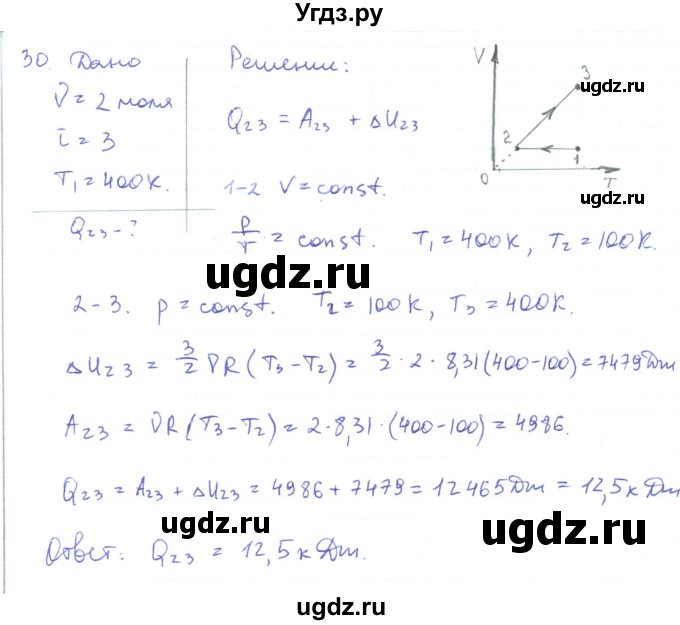 Угдз.ру
30. Дано
ν = 2 моля
i = 3
T₁ = 400К.
Q₂₃ - ?
Решение:
Q₂₃ = A₂₃ + ΔU₂₃
1-2 V = const.
p/T = const. T₁ = 400К, T₂ = 100К.
V
3
ugdz.ru
2
1
ugdz.ru
0
T
ugdz.ru
2-3. p = const. T₂ = 100К, T₃ = 400К.
ΔU₂₃ = 3/2 νR(T₃-T₂) = 3/2 · 2 · 8,31(400-100) = 7479 Дж
A₂₃ = νR(T₃-T₂) = 2·8,31·(400-100) = 4986.
Q₂₃ = A₂₃ + ΔU₂₃ = 4986 + 7479 = 12465 Дж = 12,5 к Дж
ugdz.ru
ugdz.ru
Ответ: Q₂₃ = 12,5 к Дж.
Угдз.ру
ugdz.ru